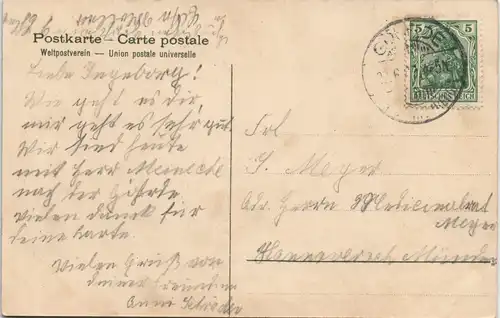 Postkarte – Carte postale
Weltpostverein – Union postale universelle
Liebe Ingeborg!
Wie geht es dir,
mir geht es sehr gut.
Wir sind heute
mit Herr Meinecke
nach der Göhrde
Vielen dank für
deine Karte.
Vielen Gruß von
deiner Freundin
Anni Schröder
5 5
Frl
I. Meyer
Adr. Herrn Medicinalrat
Meyer
Hannoversch. Münden